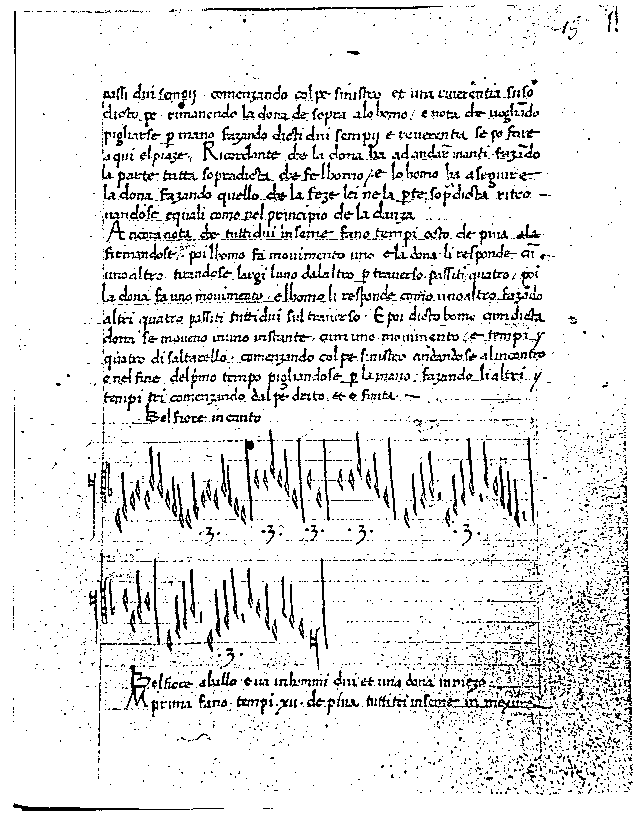 15 11
passi dui sempij comenzando col pe sinistro et una reverentia suso
dicto pe rimanendo la dona de sopra a lo homo / e nota che vogliãdo
pigliarse p mano fazando dicti dui sempij e reverentia se po fare
a qui el piaze. Ricordante che la dona ha ad andar inanti fazãdo
la parte tutta sopradicta che fe l homo / e lo homo ha a sequire
la dona fazando quello che la feze lei ne la pte sop dicta ritro
uandose equali como nel principio de la danza
Ancora nota che tutti dui inseme fano tempi octo de piua a la
firmandose / poi l homo fa movimento uno e la dona li responde cũ
uno altro tirandose largi l uno da l altro p traverso passiti quatro / poi
la dona fa uno movimento e l homo li responde como uno altro fazãdo
altri quatro passiti tutti dui sul traverso. E poi dicto homo cum dicta
dona se moueno in uno instante cum uno movimento / e tempi
quatro di saltarello comenzando col pe sinistro andandose al incontro
e nel fine del pmo tempo pigliandose p la mano fazando li altri
tempi tri comenzando dal pe drito et e finita
Belfiore in canto
.3. .3. .3. .3. .3.
.3.
Belfiore a ballo e va in homini dui et una dona in mezo
In prima fano tempi xii de piua tutti tri inseme